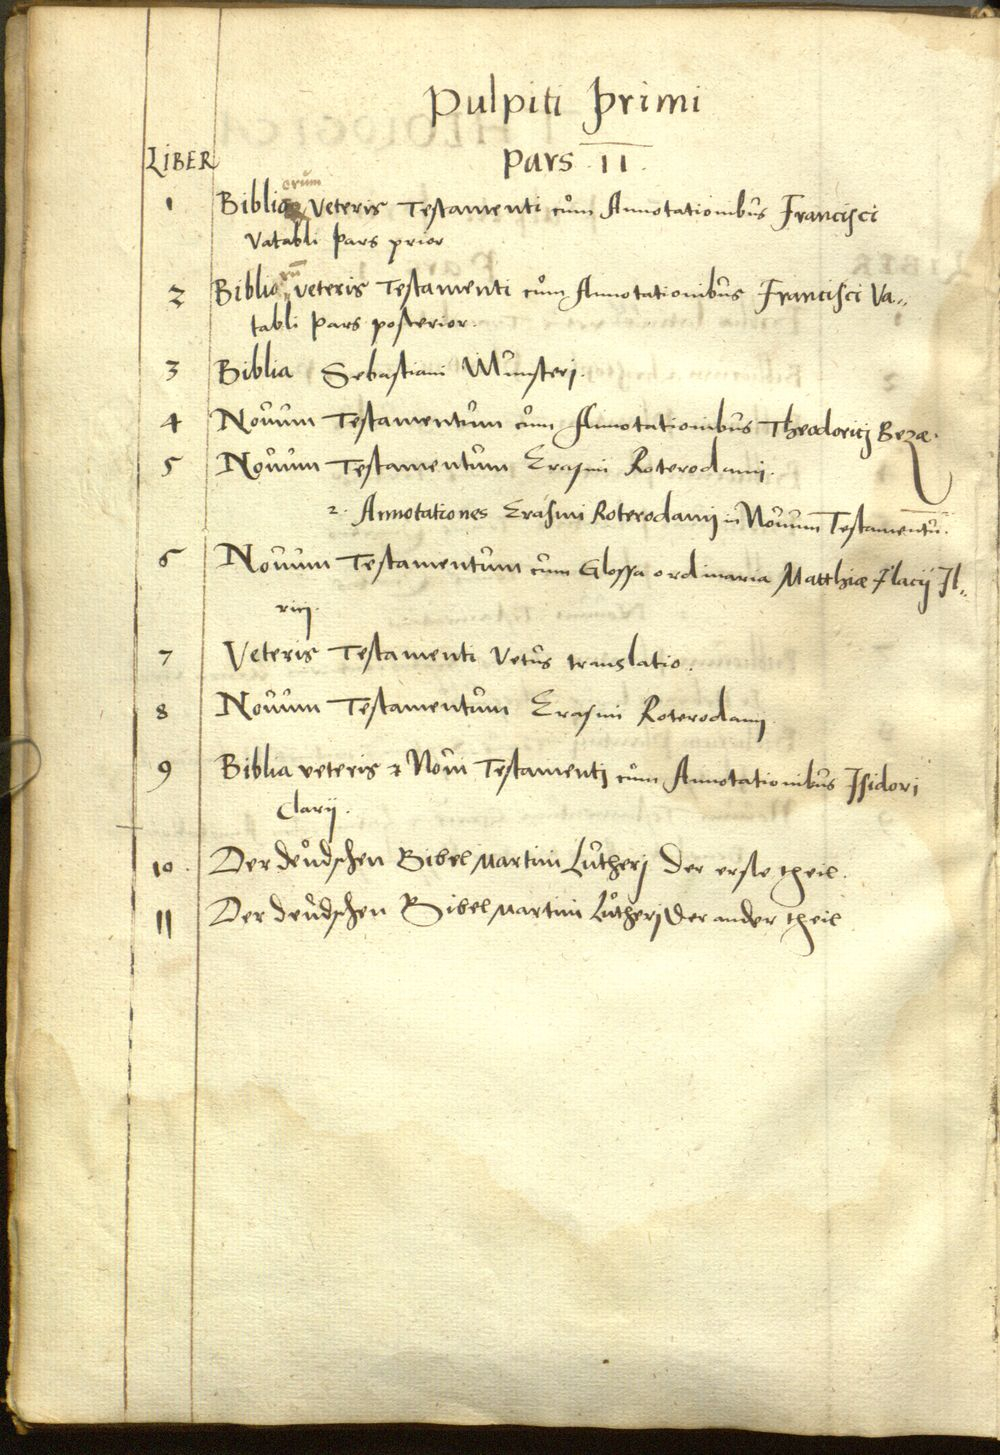 Pulpiti primi
LIBER
Pars II.
1 Bibliorum Veteris Testamenti cum Annotationibus Francisci
Vatabli Pars prior
2 Bibliorum veteris Testamenti cum Annotationibus Francisci Va„
tabli Pars posterior.
3 Biblia Sebastiani Munsterj.
4 Novum Testamentum cum Annotationibus Theodoricj Bezæ.
5 Novum Testamentum Erasmi Roterodamj.
2. Annotationes Erasmi Roterodamj in Novum Testamentū.
6 Novum Testamentum cum Glossa ordinaria Matthiæ Flacij Il„
ricj.
7 Veteris Testamenti Vetus translatio.
8 Novum Testamentum Erasmi Roterodamj
9 Biblia veteris & Novi Testamentj cum Annotationibus Isidori
Clarij.
10. Der deudschen Bibel Martini Lutherj der erste theil.
11 Der deudschen Bibel Martini Lutherj der ander theil